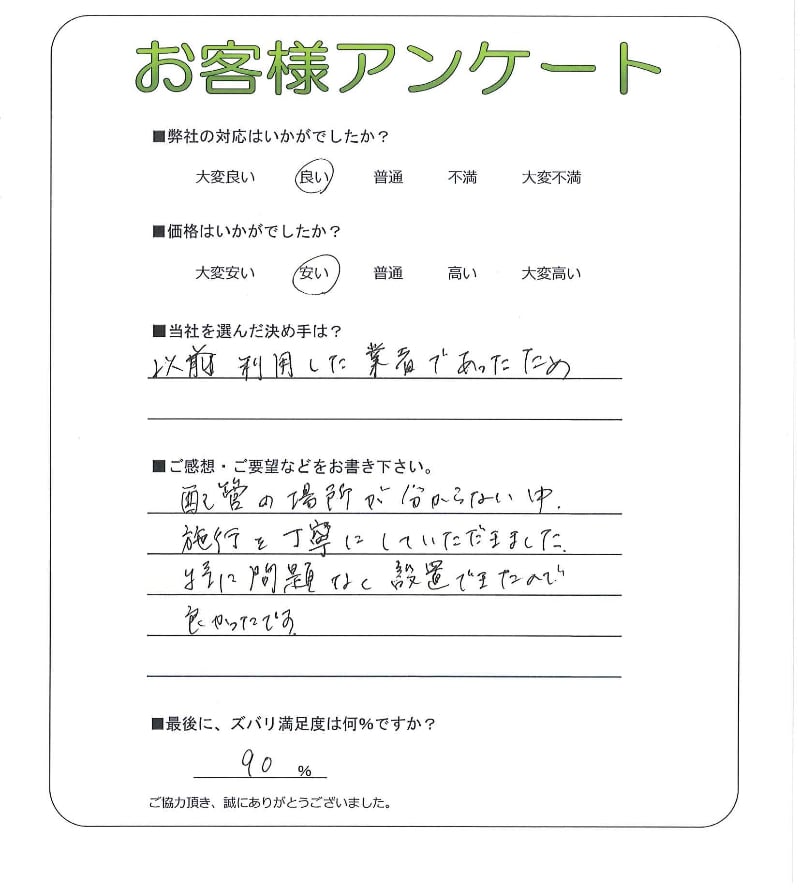 お客様アンケート
■弊社の対応はいかがでしたか？
大変良い 良い 普通 不満 大変不満
■価格はいかがでしたか？
大変安い 安い 普通 高い 大変高い
■当社を選んだ決め手は？
以前利用した業者であったため
■ご感想・ご要望などをお書き下さい。
配管の場所が分からない中、
施行を丁寧にしていただきました。
特に問題なく設置できたので
良かったです。
■最後に、ズバリ満足度は何％ですか？
90 ％
ご協力頂き、誠にありがとうございました。